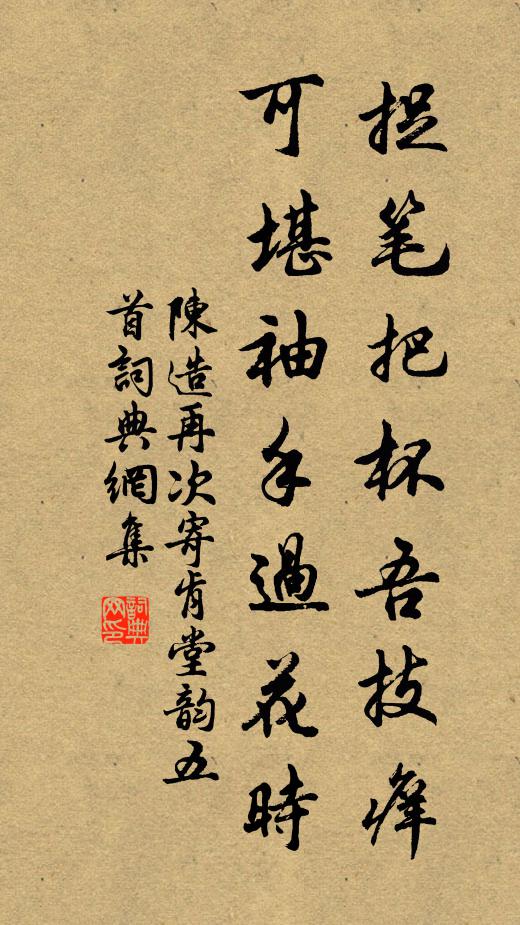 捉笔把杯吾技痒
可堪袖手過花時
陳造再次寄肯堂韵五
首詞典網集
詞典网印